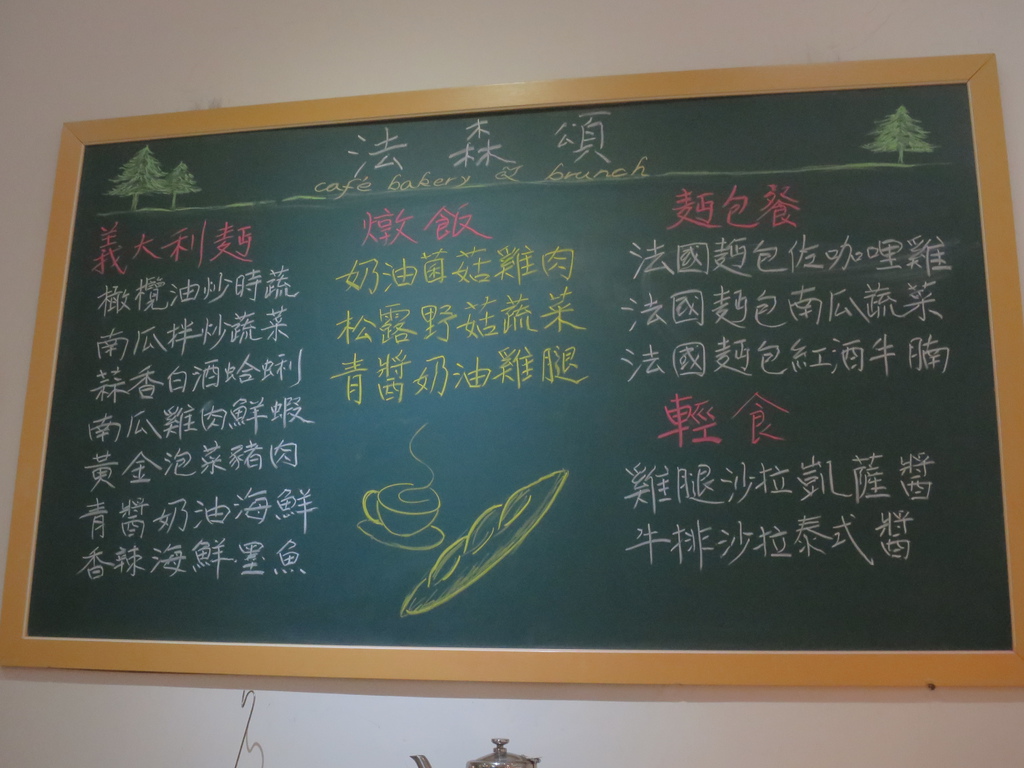 法森頌
café bakery & brunch
義大利麵
橄欖油炒時蔬
南瓜拌炒蔬菜
蒜香白酒蛤蜊
南瓜雞肉鮮蝦
黃金泡菜豬肉
青醬奶油海鮮
香辣海鮮墨魚
燉飯
奶油菌菇雞肉
松露野菇蔬菜
青醬奶油雞腿
麵包餐
法國麵包佐咖哩雞
法國麵包南瓜蔬菜
法國麵包紅酒牛腩
輕食
雞腿沙拉凱薩醬
牛排沙拉泰式醬